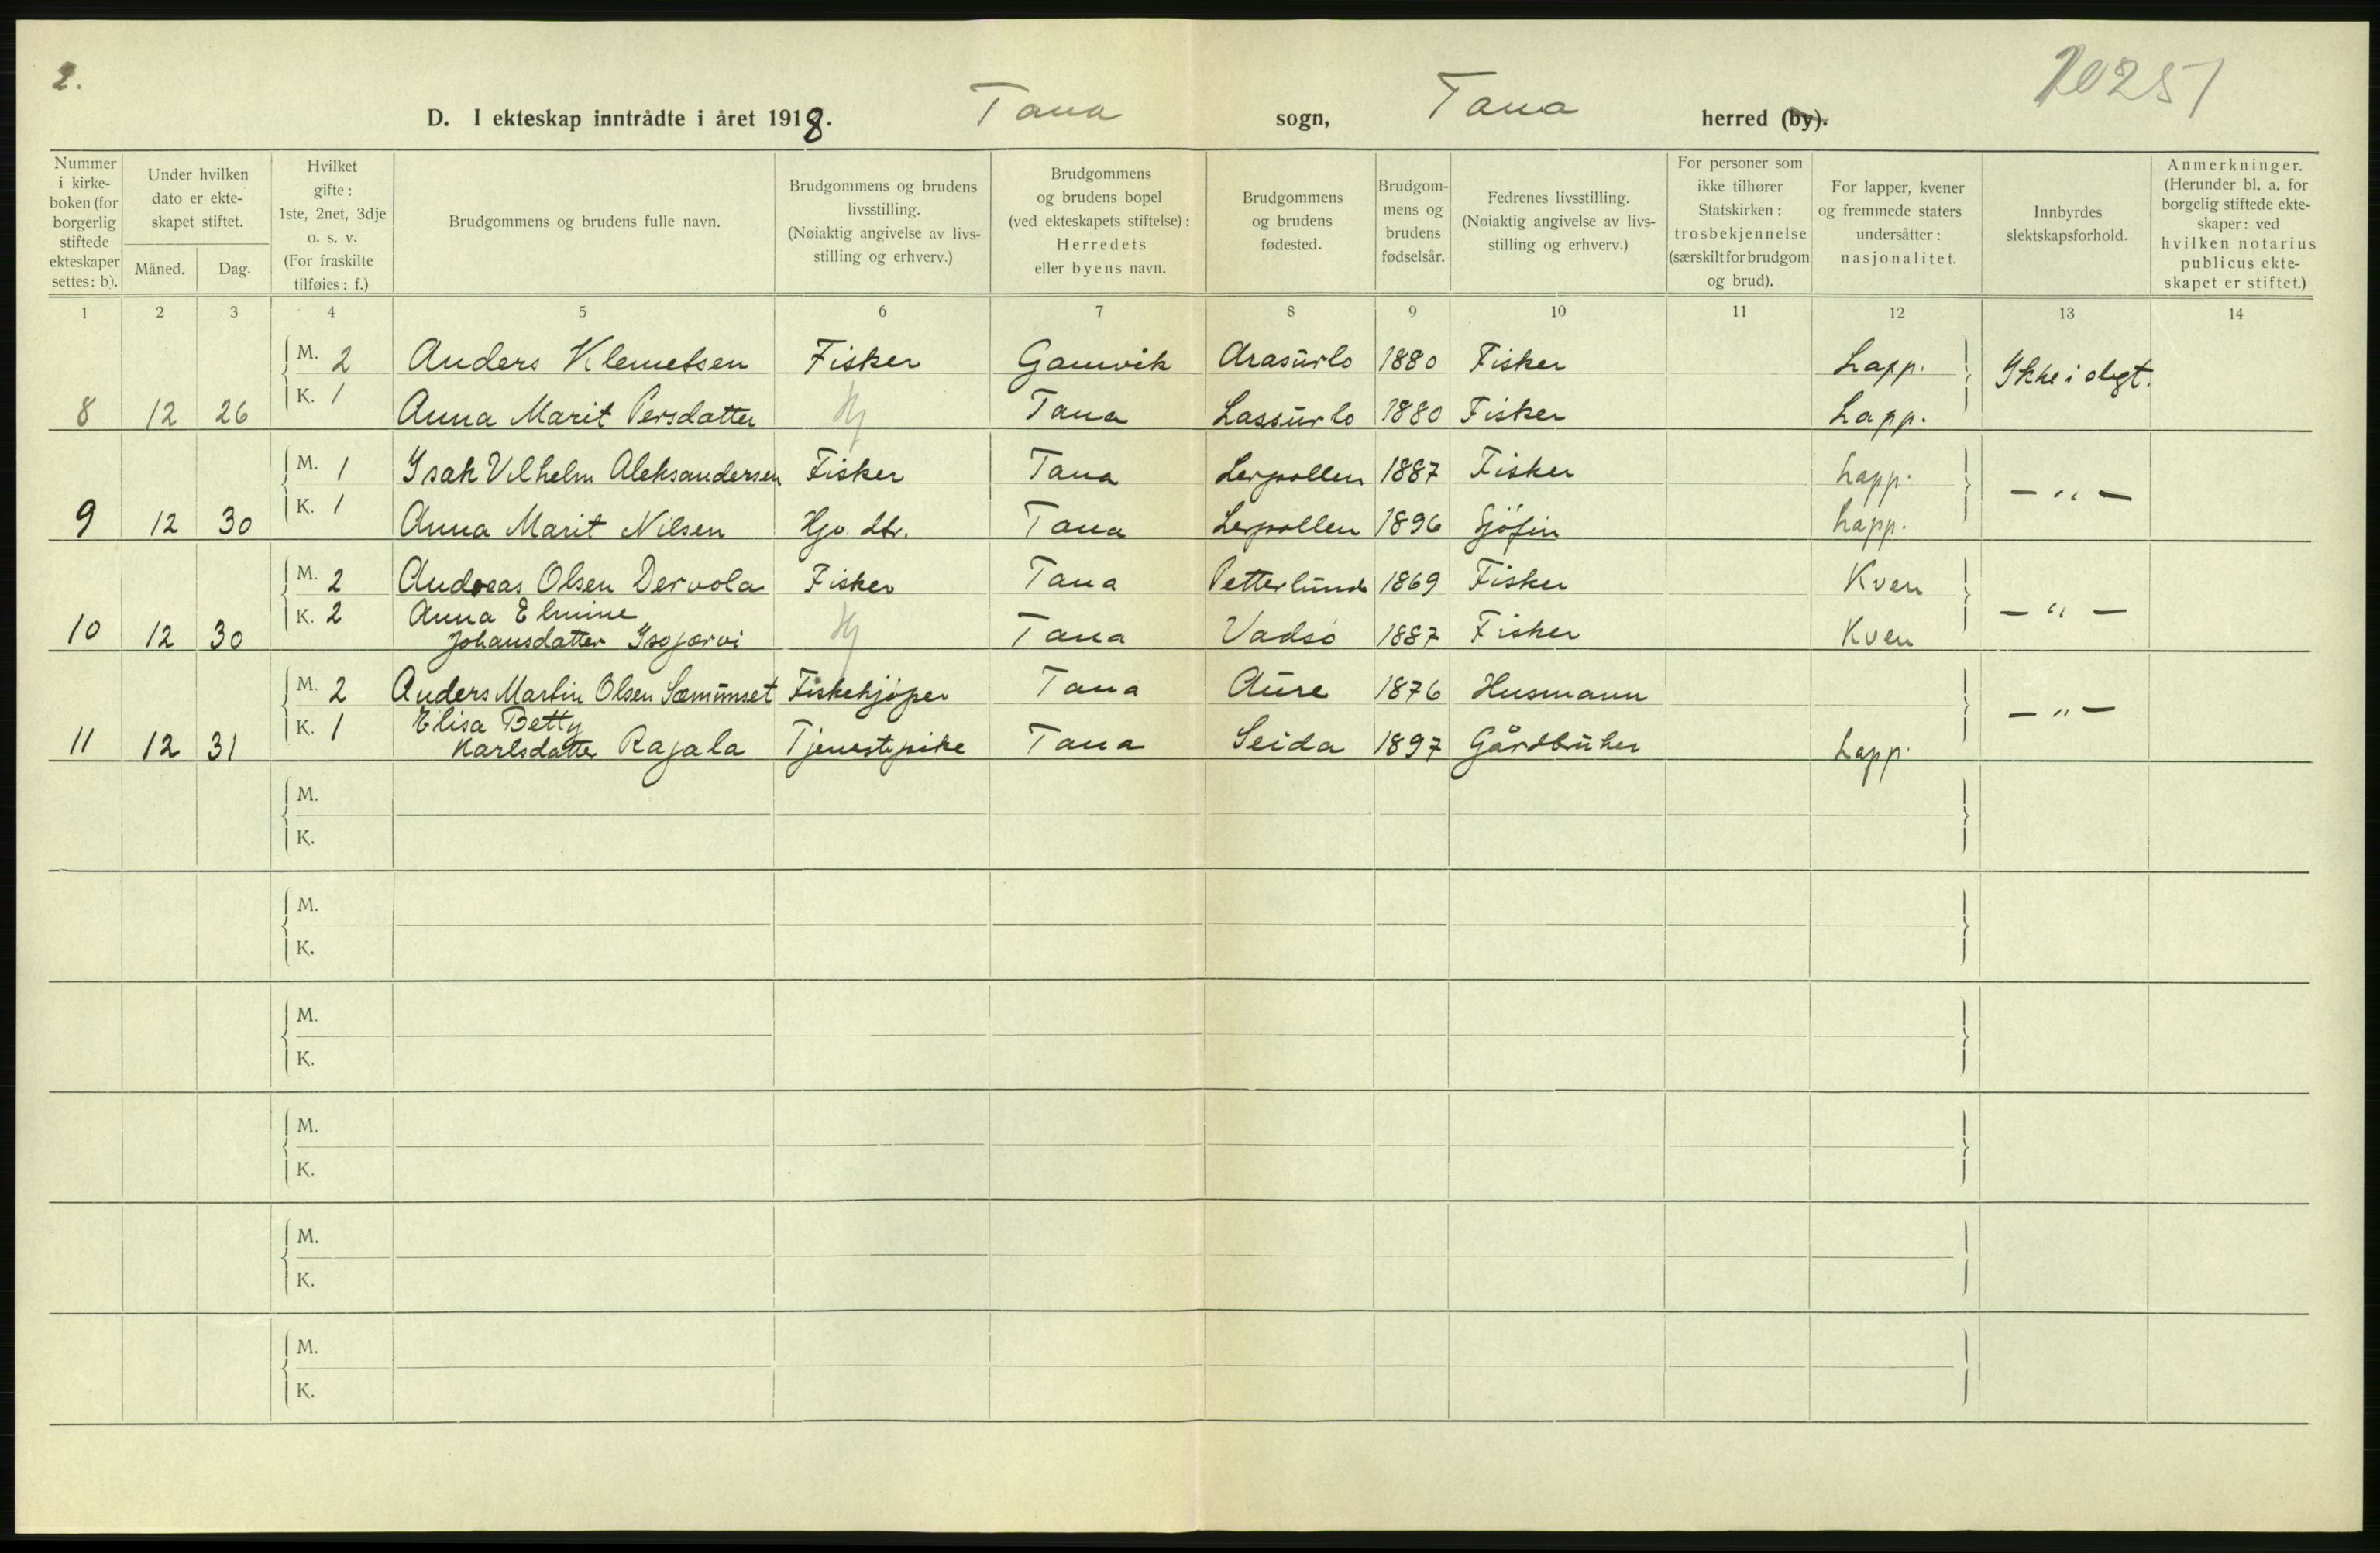 2.
20251
D. I ekteskap inntrådte i året 1918. Tana sogn, Tana herred (by).
Nummer i kirkeboken (for borgerlig stiftede ekteskaper settes: b).
Under hvilken dato er ekteskapet stiftet.
Måned. Dag.
Hvilket gifte: 1ste, 2net, 3dje o. s. v. (For fraskilte tilføies: f.)
Brudgommens og brudens fulle navn.
Brudgommens og brudens livsstilling. (Nøiaktig angivelse av livsstilling og erhverv.)
Brudgommens og brudens bopel (ved ekteskapets stiftelse): Herredets eller byens navn.
Brudgommens og brudens fødested.
Brudgommens og brudens fødselsår.
Fedrenes livsstilling. (Nøiaktig angivelse av livsstilling og erhverv.)
For personer som ikke tilhører Statskirken: trosbekjennelse (særskilt for brudgom og brud).
For lapper, kvener og fremmede staters undersåtter: nasjonalitet.
Innbyrdes slektskapsforhold.
Anmerkninger. (Herunder bl. a. for borgelig stiftede ekteskaper: ved hvilken notarius publicus ekteskapet er stiftet.)
1 2 3 4 5 6 7 8 9 10 11 12 13 14
M. 2 Anders Klemetsen Fisker Gamvik Arasurlo 1880 Fisker Lapp. Ikke i slegt.
8 12 26 K. 1 Anna Marit Persdatter Hj Tana Lassurlo 1880 Fisker Lapp.
M. 1 Isak Vilhelm Aleksandersen Fisker Tana Lerpollen 1887 Fisker Lapp. — " —
9 12 30 K. 1 Anna Marit Nilsen Hjv. dtr. Tana Lerpollen 1896 Sjöfin Lapp.
M. 2 Andreas Olsen Dervola Fisker Tana Petterlund 1869 Fisker Kven — " —
K. 2 Anna Elmine
10 12 30 Johansdatter Isojarvi Hj Tana Vadsö 1887 Fisker Kven
M. 2 Anders Martin Olsen Sæmumset Fiskekjöper Tana Aure 1876 Husmann — " —
K. 1 Elisa Betty
11 12 31 Karlsdatter Rajala Tjenestepike Tana Seida 1897 Gårdbruker Lapp.
M.
K.
M.
K.
M.
K.
M.
K.
M.
K.
M.
K.